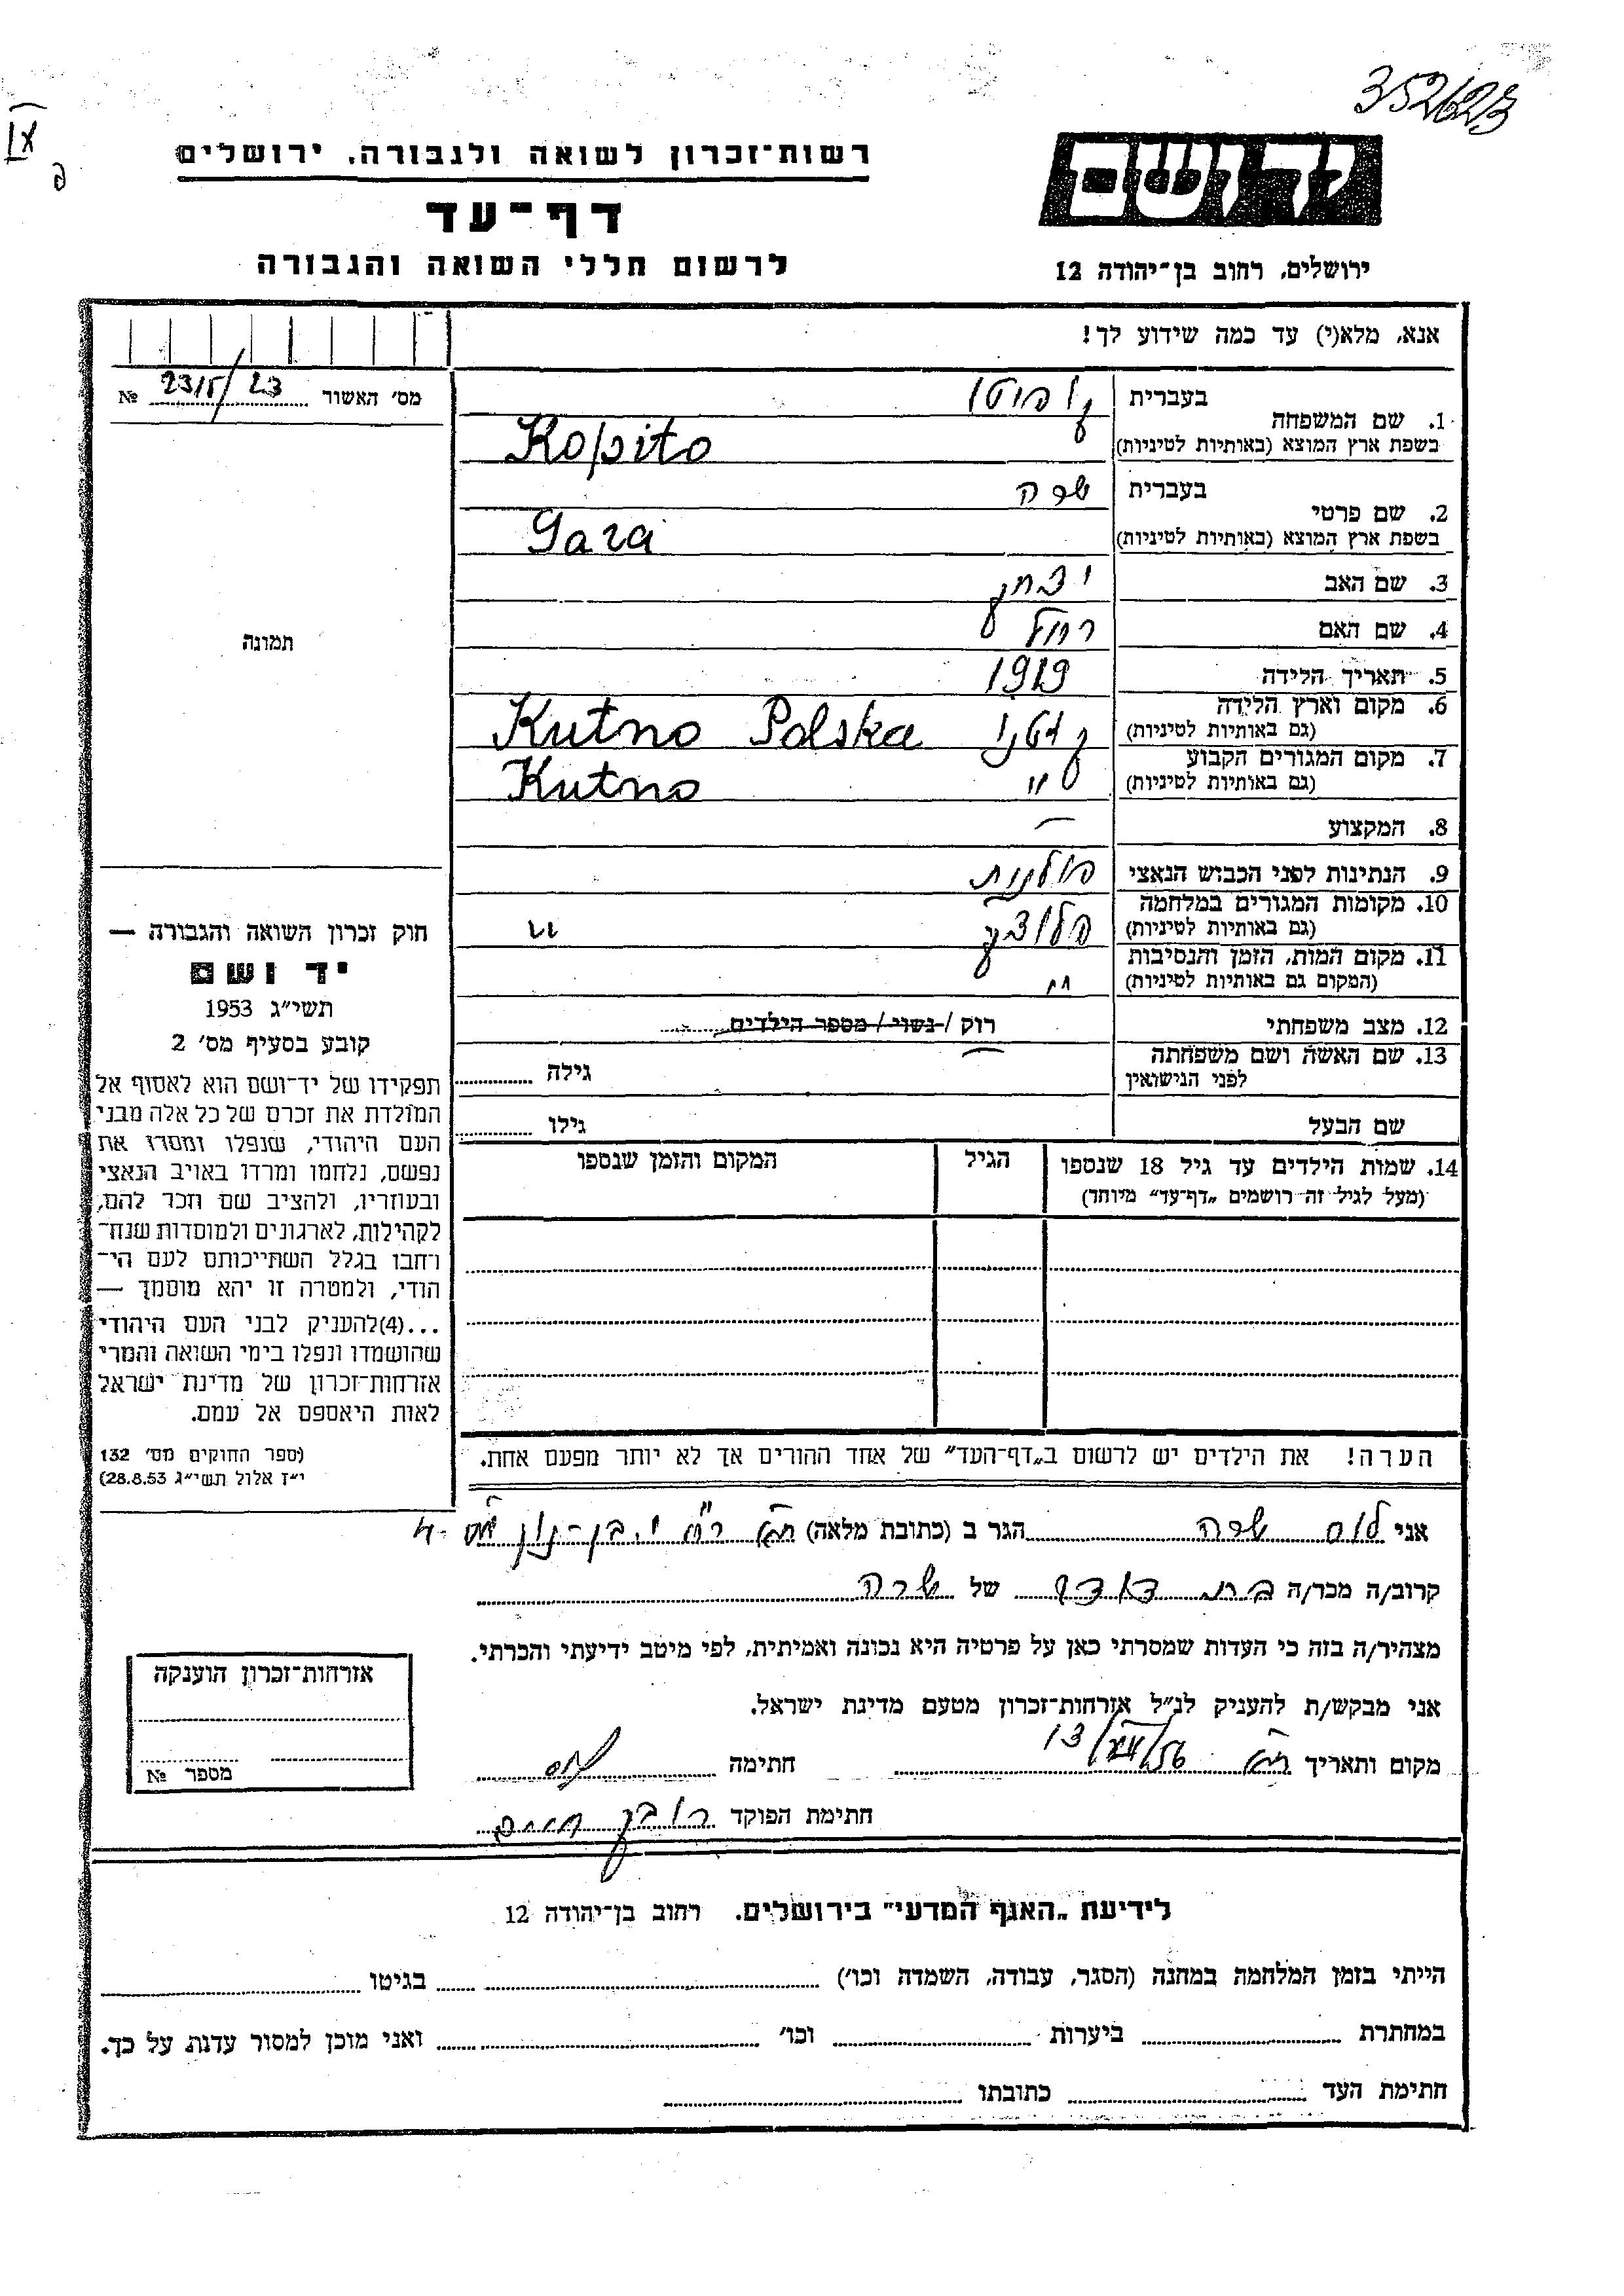 352/623
IX
רשות־זכרון לשואה ולגבורה, ירושלים
דף־עד
לרשום חללי השואה והגבורה
ידושם
ירושלים, רחוב בן־יהודה 12
אנא, מלא(י) עד כמה שידוע לך!
מס׳ האשור 2315/23 №
תמונה
בעברית קופיטו
1. שם המשפחה
בשפת ארץ המוצא (באותיות לטיניות) Kopito
בעברית שרה
2. שם פרטי
בשפת ארץ המוצא (באותיות לטיניות) Sara
3. שם האב יצחק
4. שם האם רחל
5. תאריך הלידה 1919
6. מקום וארץ הלידה
(גם באותיות לטיניות) קוטנו Kutno Polska
7. מקום המגורים הקבוע
(גם באותיות לטיניות) " Kutno
8. המקצוע —
9. הנתינות לפני הכבוש הנאצי פולנית
10. מקומות המגורים במלחמה
(גם באותיות לטיניות) פלוצק "
11. מקום המות, הזמן והנסיבות
(המקום גם באותיות לטיניות) "
12. מצב משפחתי רוק / נשוי / מספר הילדים
13. שם האשה ושם משפחתה — גילה
לפני הנישואין
שם הבעל גילו
14. שמות הילדים עד גיל 18 שנספו הגיל המקום והזמן שנספו
(מעל לגיל זה רושמים „דף־עד״ מיוחד)
הערה! את הילדים יש לרשום ב„דף־העד״ של אחד ההורים אך לא יותר מפעם אחת.
חוק זכרון השואה והגבורה —
יד ושם
תשי״ג 1953
קובע בסעיף מס׳ 2
תפקידו של יד־ושם הוא לאסוף אל
המולדת את זכרם של כל אלה מבני
העם היהודי, שנפלו ומסרו את
נפשם, נלחמו ומרדו באויב הנאצי
ובעוזריו, ולהציב שם וזכר להם,
לקהילות, לארגונים ולמוסדות שנח־
רחבו בגלל השתייכותם לעם הי־
הודי, ולמטרה זו יהא מוסמך —
...(4)להעניק לבני העם היהודי
שהושמדו ונפלו בימי השואה והמרי
אזרחות־זכרון של מדינת ישראל
לאות היאספם אל עמם.
(ספר החוקים מס׳ 132
י״ז אלול תשי״ג 28.8.53)
אני שרה הגר ב (כתובת מלאה) בן־נון
קרוב/ה מכר/ה בת דוד של שרה
מצהיר/ה בזה כי העדות שמסרתי כאן על פרטיה היא נכונה ואמיתית, לפי מיטב ידיעתי והכרתי.
אני מבקש/ת להעניק לנ״ל אזרחות־זכרון מטעם מדינת ישראל.
מקום ותאריך 13/XII/56 חתימה
חתימת הפוקד
אזרחות־זכרון הוענקה
מספר №
לידיעת „האגף המדעי״ בירושלים, רחוב בן־יהודה 12
הייתי בזמן המלחמה במחנה (הסגר, עבודה, השמדה וכו׳) בגיטו
במחתרת ביערות וכו׳ ואני מוכן למסור עדות על כך.
חתימת העד כתובתו